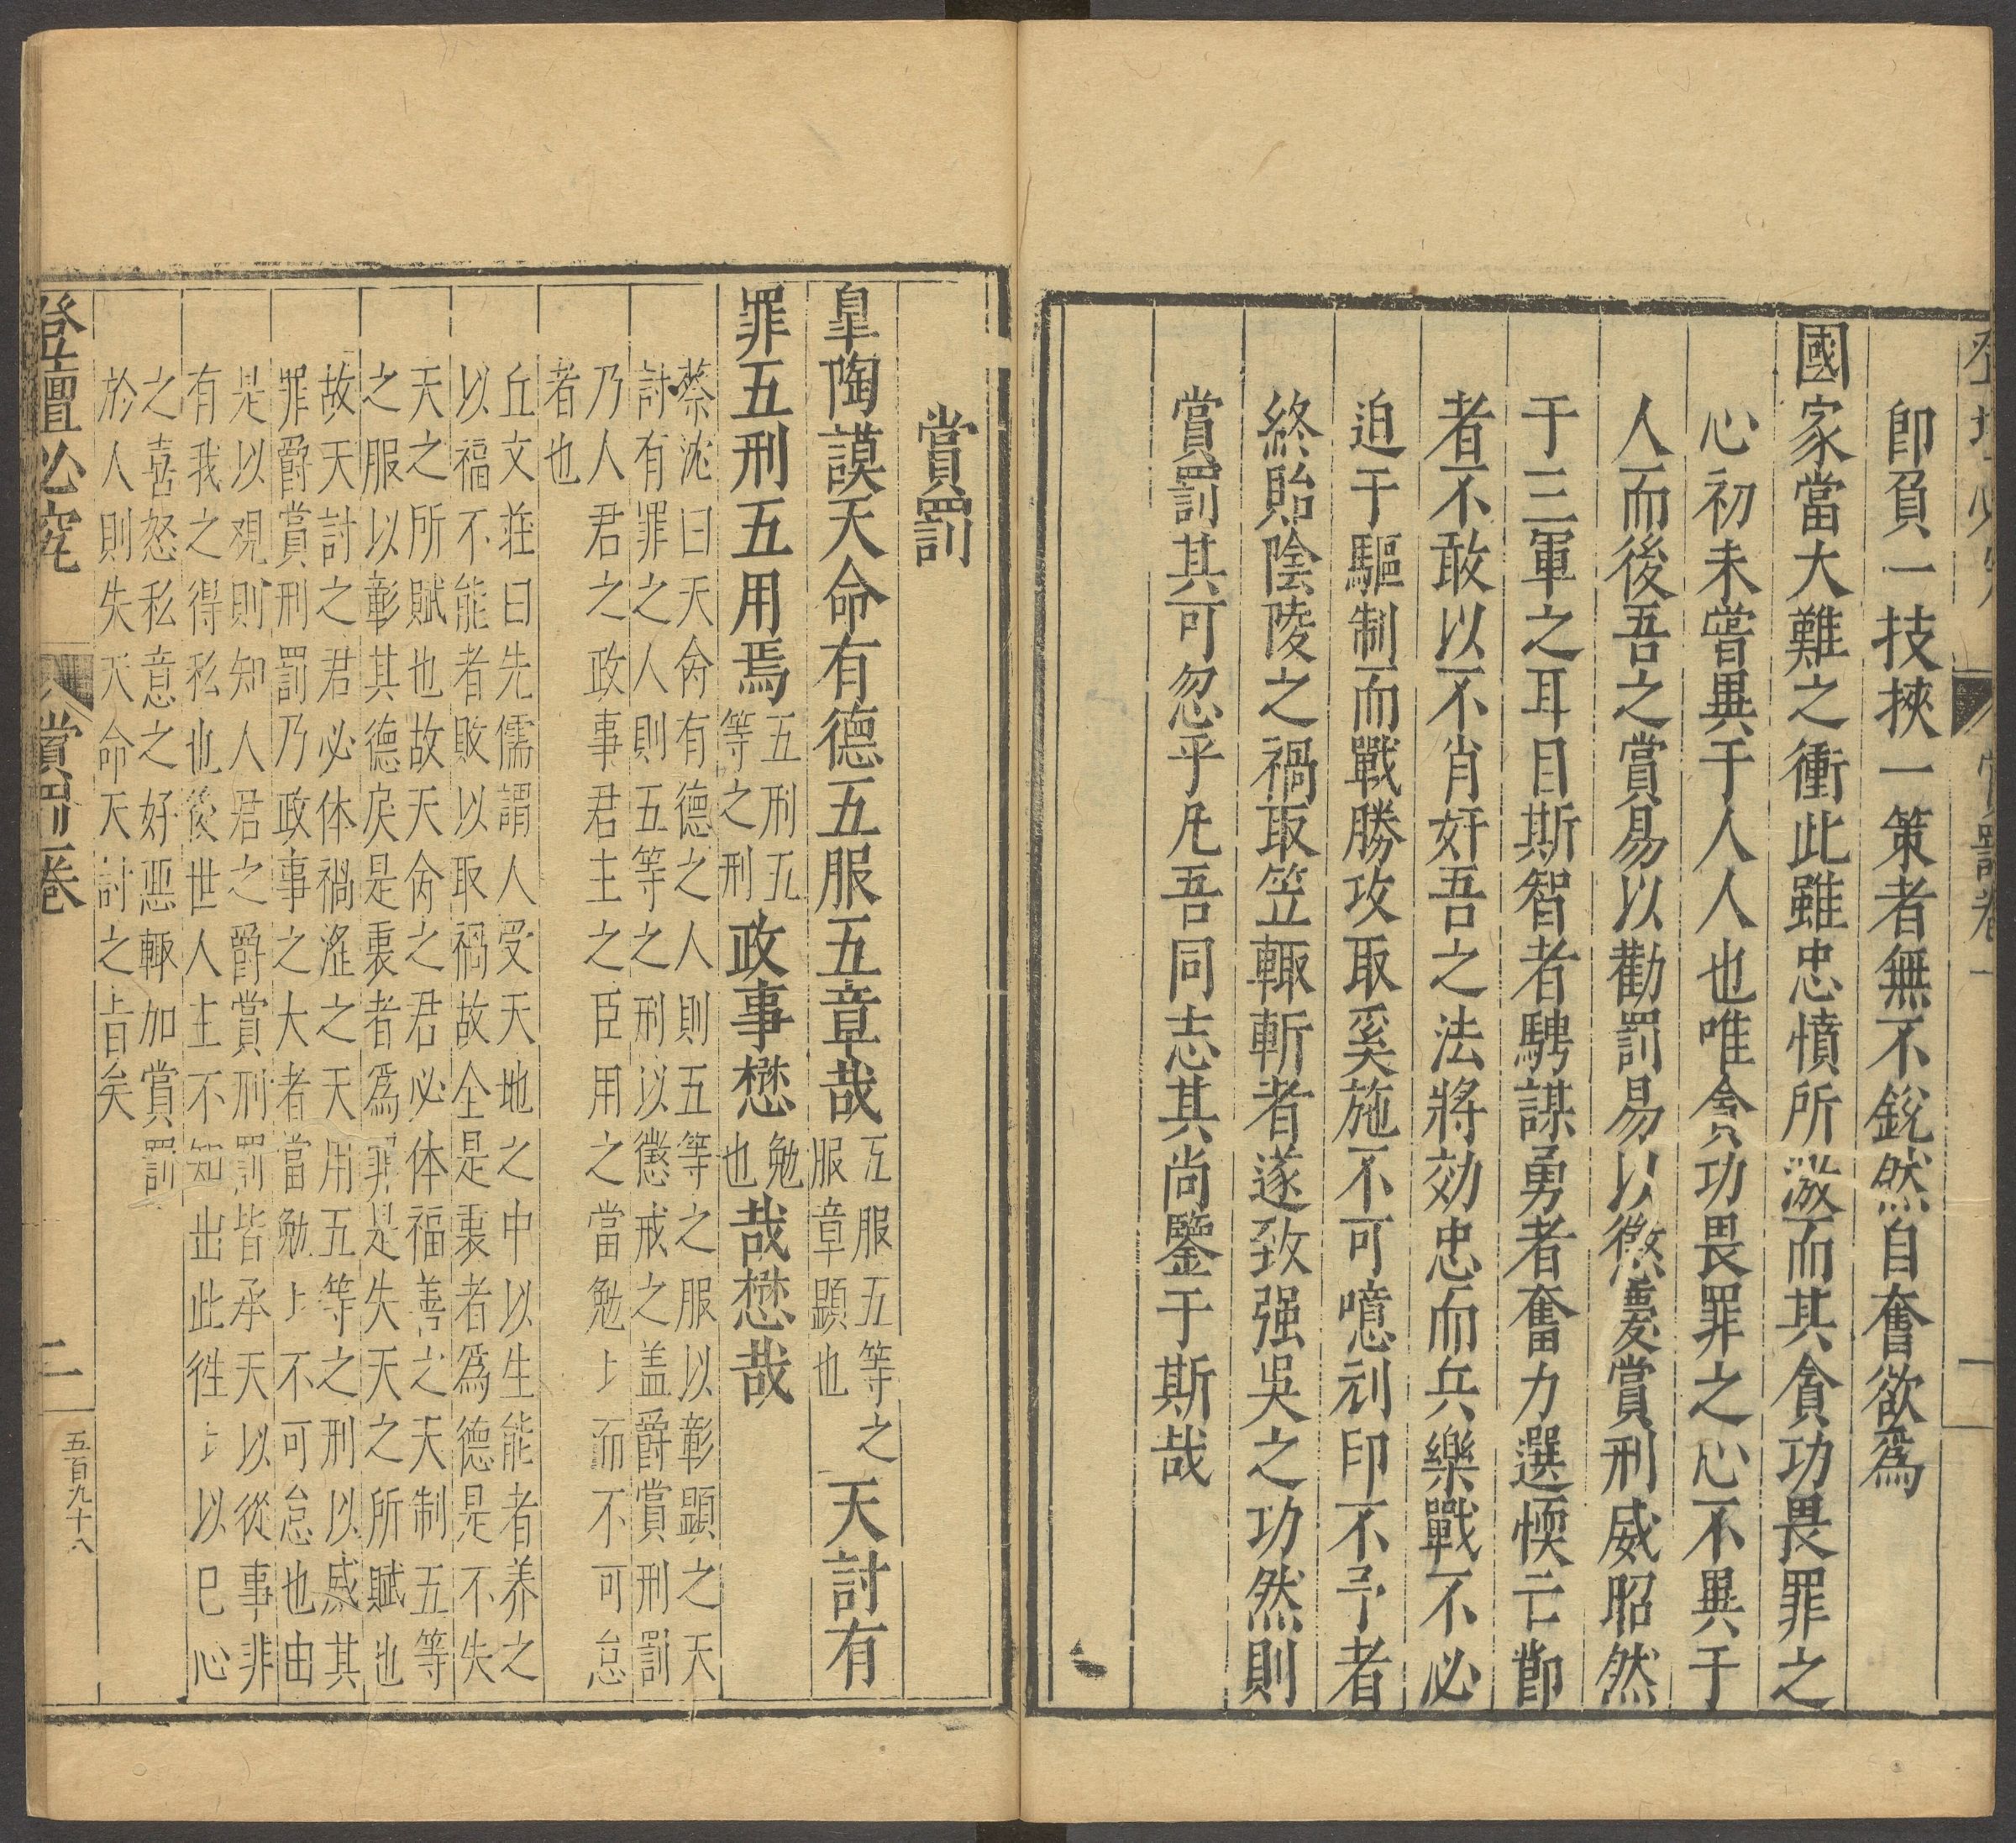 登壇必究 賞罰卷 一
即負一技挾一策者無不銳然自奮欲爲
國家當大難之衝此雖忠憤所激而其貪功畏罪之
心初未嘗異于人人也唯貪功畏罪之心不異于
人而後吾之賞易以勸罰易以懲慶賞刑威昭然
于三軍之耳目斯智者騁謀勇者奮力選愞亡節
者不敢以不肖奸吾之法將効忠而兵樂戰不必
迫于驅制而戰勝攻取奚施不可噫刓印不予者
終貽陰陵之禍取笠輙斬者遂致强吳之功然則
賞罰其可忽乎凡吾同志其尚鑒于斯哉
賞罰
皐陶謨天命有德五服五章哉五服五等之服章顯也天討有
罪五刑五用焉五刑五等之刑政事懋勉也哉懋哉
蔡沈曰天命有德之人則五等之服以彰顯之天
討有罪之人則五等之刑以懲戒之盖爵賞刑罰
乃人君之政事君主之臣用之當勉〻而不可怠
者也
丘文莊曰先儒謂人受天地之中以生能者养之
以福不能者敗以取禍故全是衷者爲德是不失
天之所賦也故天命之君必体福善之天制五等
之服以彰其德戾是衷者爲罪是失天之所賦也
故天討之君必体禍滛之天用五等之刑以威其
罪爵賞刑罰乃政事之大者當勉〻不可怠也由
是以观則知人君之爵賞刑罰皆承天以從事非
有我之得私也後世人主不知出此徃〻以巳心
之喜怒私意之好惡輙加賞罰
於人則失天命天討之旨矣
登壇必究 賞罰卷 二 五百九十八